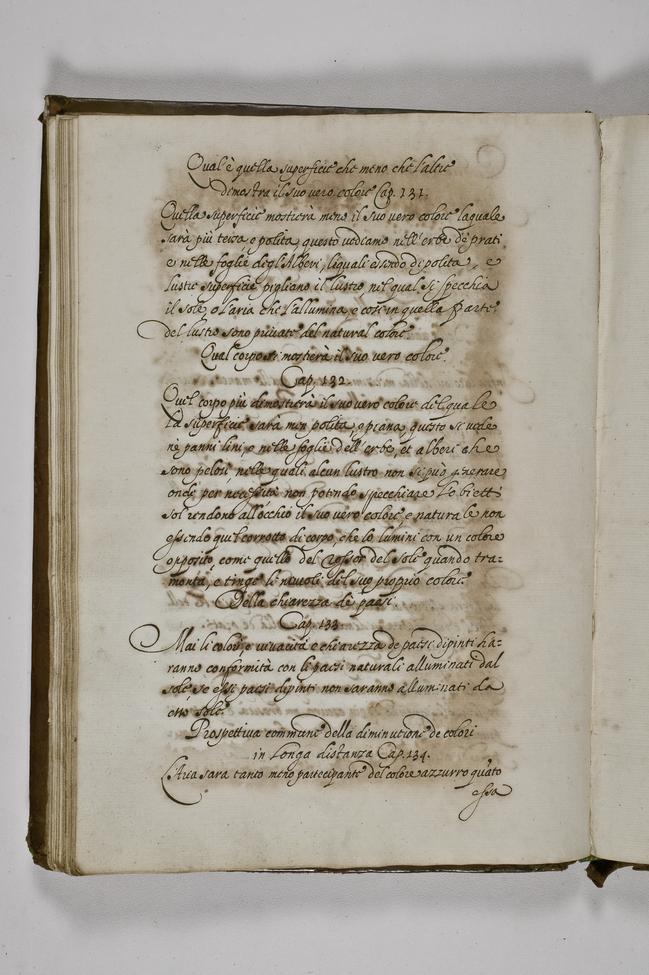 Qual'è quella superficie che meno che l'altre
dimostra il suo vero colore Cap. 131.
Quella superficie mostrerà meno il suo vero colore laquale
sarà più tersa e polita, questo vediamo nell'erbe de prati
e nelle foglie degl'Alberi, liquali essendo di polita, e
lustre superficie pigliano il lustro nel qual si specchia
il sole, o l'aria che l'allumina, e così in quella parte
del lustro sono private del natural colore.
Qual corpo ti mostrerà il suo vero colore.
Cap. 132.
Quel corpo più dimostrerà il suo vero colore del quale
la superficie sarà men polita, e piana, questo si vede
nè panni lini, e nelle foglie dell'erbe, et alberi che
sono pelosi, nelle quali alcun lustro non si può generare
onde per necessità non potendo specchiare lo bietti
sol rendono all'occhio il suo vero colore, e naturale non
essendo quel corrotto di corpo, che lo lumini con un colore
opposito, come quello del rossor del sole quando tra=
monta, e tinge li nuvoli del suo proprio colore.
Della chiarezza dè paesi.
Cap. 133
Mai li colori, e vivacità e chiarezza de paesi dipinti ha=
ranno conformità con li paesi naturali alluminati dal
sole, se essi paesi dipinti non saranno alluminati da
esso sole.
Prospettiva commune della diminutione de colori
in longa distanza Cap. 134.
L'Aria sara tanto meno partecipante del colore azzurro quato
essa